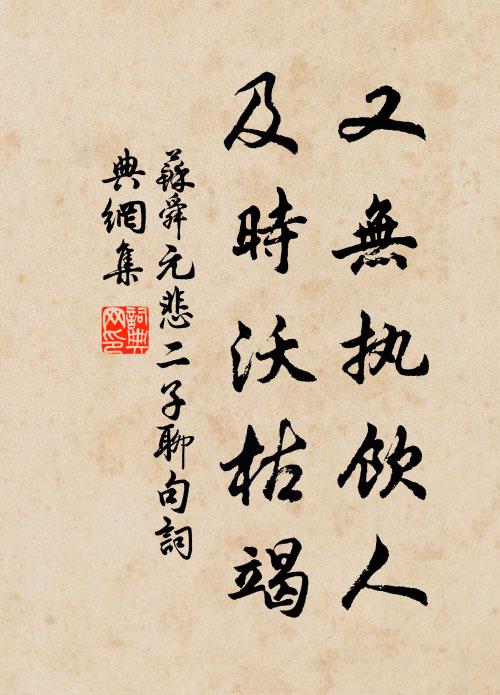 又無执飲人
及時沃枯竭
蘇舜元悲二子聊句詞
典網集
詞典
网印